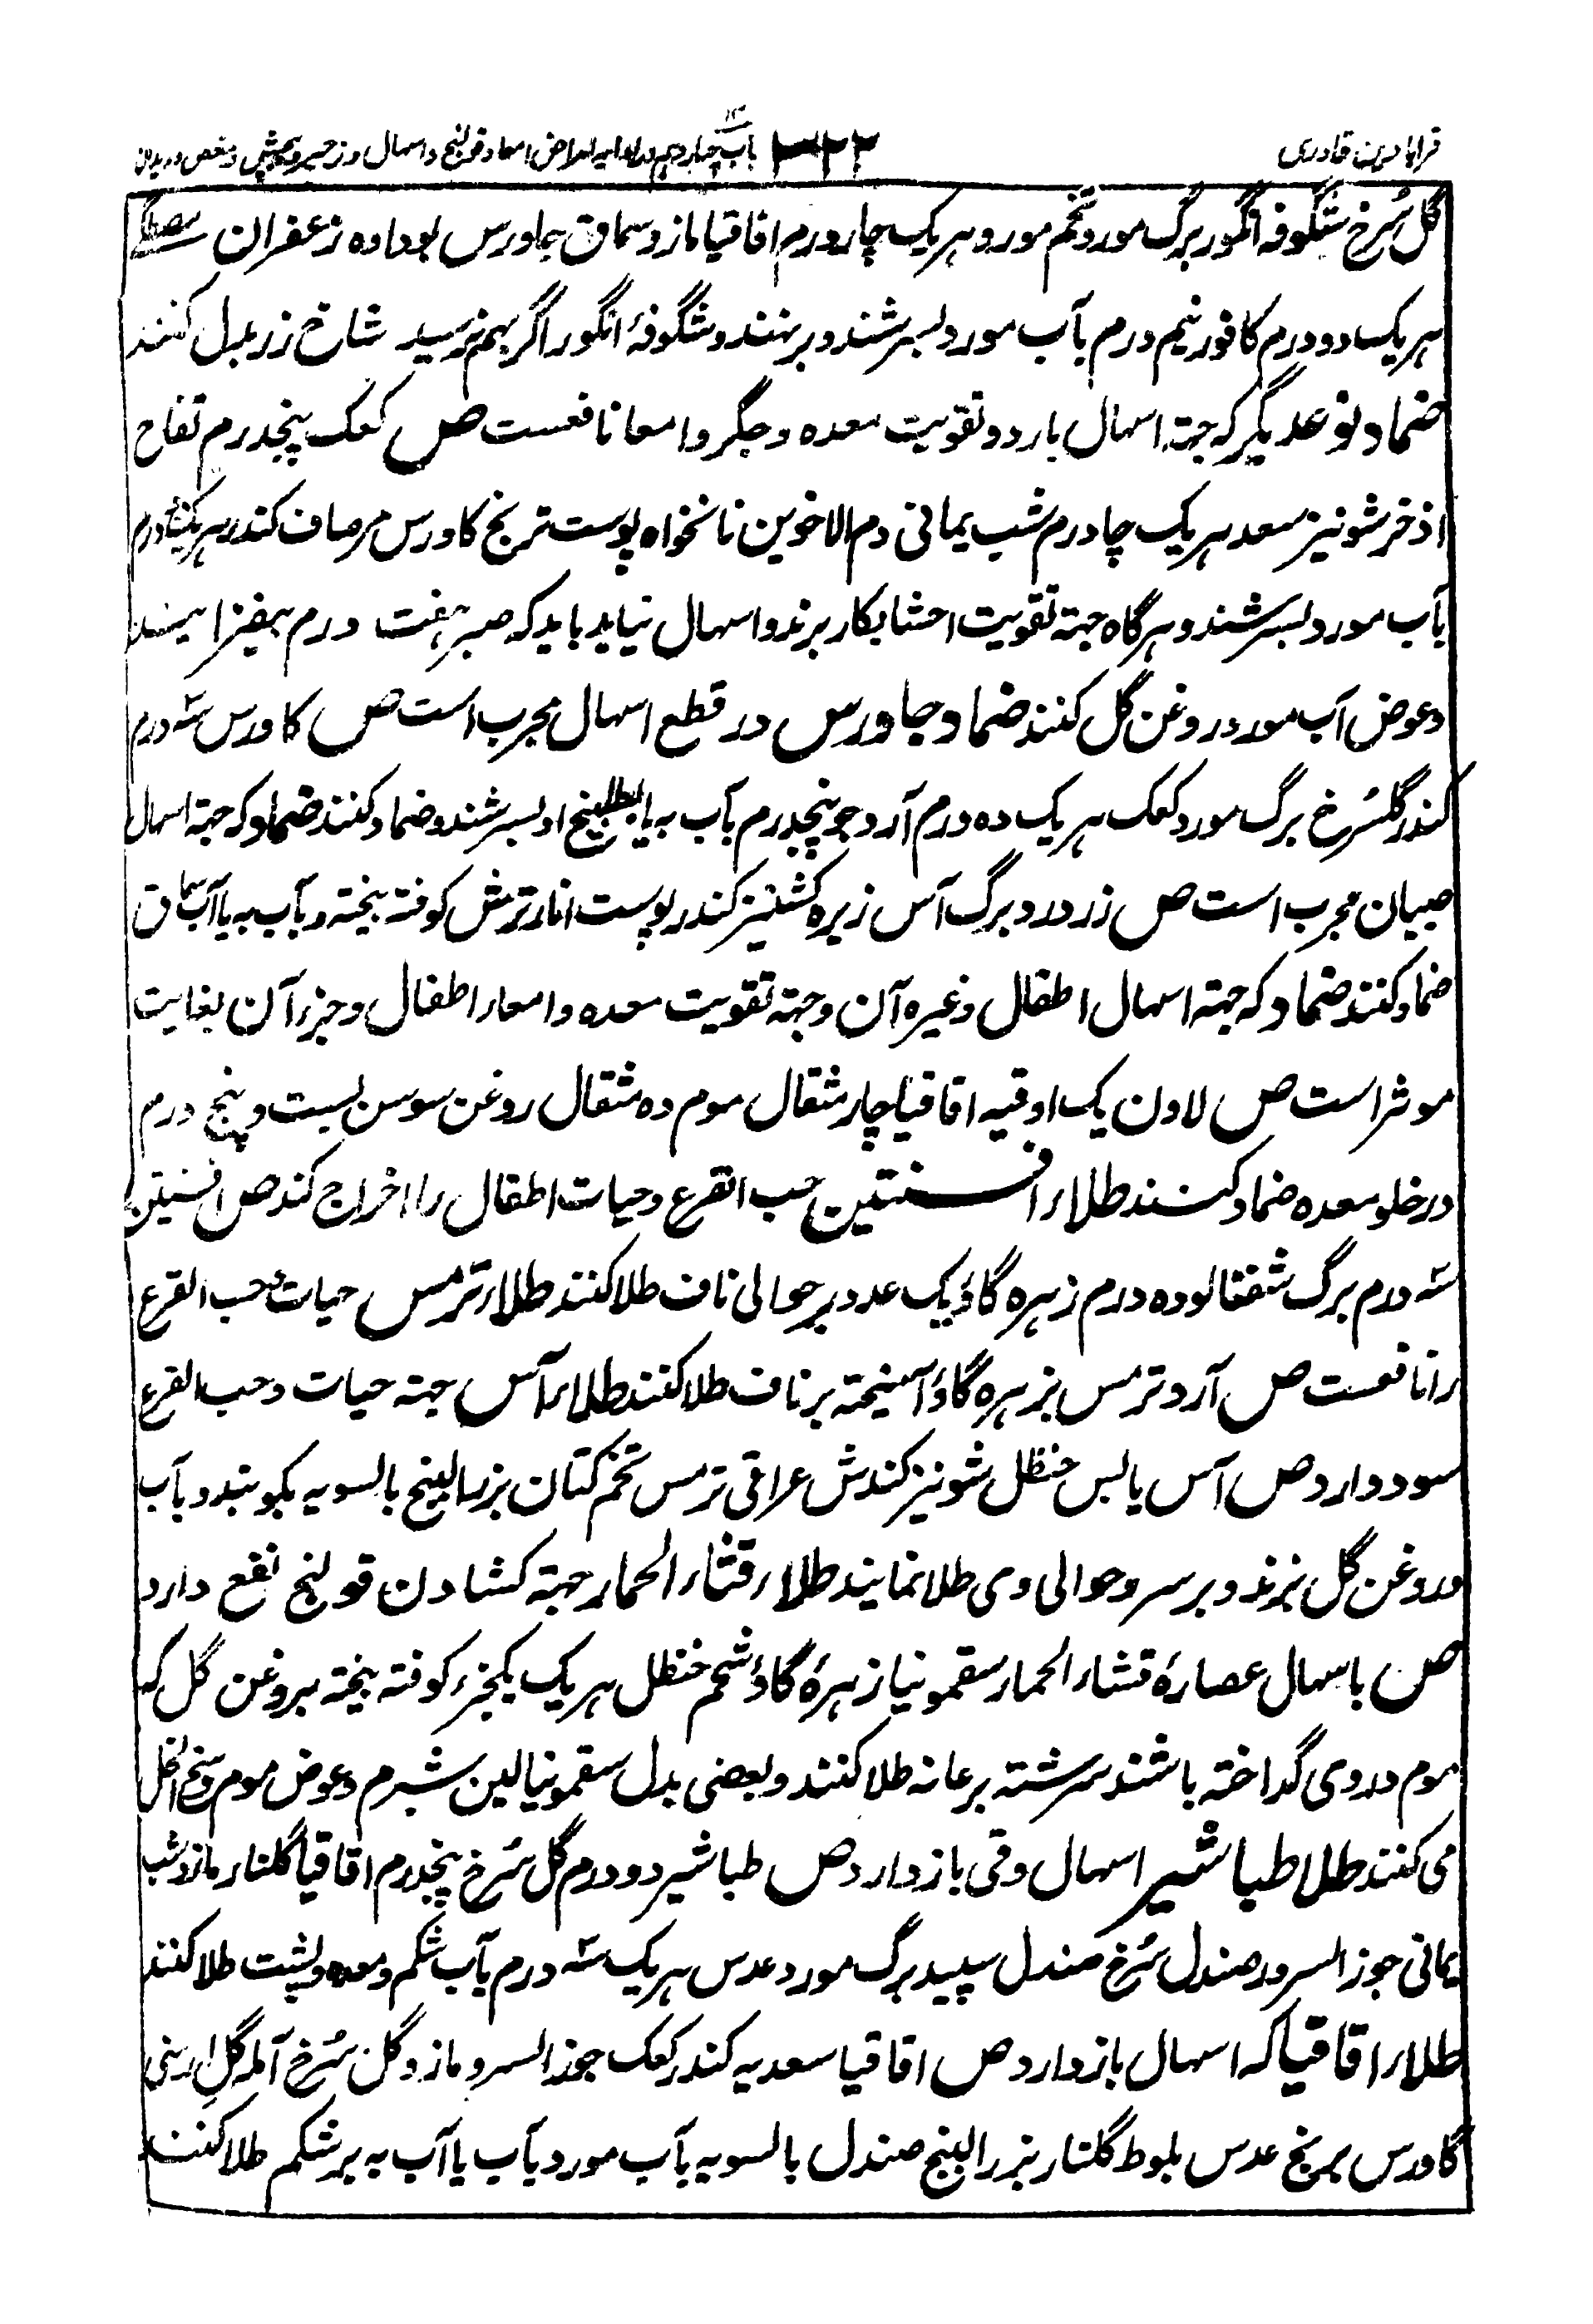 قرابادین قادری ۳۲۲ باب چهاردهم در ادویه امراض امعا و قولنج و اسهال و زحیر و پیچش و مغص و دیدان
گل سُرخ شگوفه انگور برگ مورد تخم مورد هریک چار درم اقاقیا مازو سماق جاورس بوداده زعفران مصطگے
هریک دو درم کافور نیم درم بآب مورد بسرشند و برنهند و شگوفۂ انگور اگر بهم نرسد شاخ زر بدل کنند
ضماد نوعدیگر که جهته اسهال بارد و تقویت معده و جگر و امعا نافعست ص کعک پنجدرم تفاح
اذخر شونیز سعد هریک چادرم شب یمانی دم الاخوین نانخواه پوست ترنج کاورس مرصاف کندر هریک درم
بآب مورد بسرشند و هرگاه جهته تقویت احشا بکار برند و اسهال نیاید باید که صبر هفت درم بیفزایند
وعوض آب مورد روغن گل کنند ضماد جاورس در قطع اسهال مجرب است ص کاورس سه درم
کندر گلسُرخ برگ مورد کعک هریک ده درم آرد جو پنجدرم بآب به یا بطبیخ او بسرشند و ضماد کنند ضماد که جهته اسهال
صبیان مجرب است ص زر ورد برگ آس زیره کشنیز کندر پوست انار ترش کوفته بیخته و بآب به یا آب سماق
ضماد کنند ضماد که جهته اسهال اطفال وغیره آن وجهته تقویت معده و امعاء اطفال و جزء آن بغایت
موثر است ص لادن یک اوقیه اقاقیا چار مثقال موم ده مثقال روغن سوسن بست و پنج درم
در خلو معده ضماد کنند طلاء افسنتین حب القرع و حیات اطفال را اخراج کند ص افسنتین
سه درم برگ شفتالو ده درم زهره گاؤ یک عدد بر حوالی ناف طلا کنند طلاء ترمس حیات و حب القرع
را نافعست ص آرد ترمس بزهره گاؤ آمیخته بر ناف طلا کنند طلاء آس جهته حیات و حب القرع
سود دارد ص آس یابس حنظل شونیز کندش عراقی ترمس تخم کتان بزرالبنج بالسویه بکوبند و بآب
و روغن گل بزند و بر سر و حوالی وی طلا نمایند طلاء قثاء الحمار جهته کشادن قولنج نفع دارد
ص باسهال عصارۂ قثاء الحمار سقمونیا زهرۂ گاؤ شحم حنظل هریک یکجزء کوفته بیخته بروغن گل که
موم در وی گداخته باشند سرشته بر عانه طلا کنند و بعضی بدل سقمونیا لبن شبرم وعوض موم
می کنند طلا طباشیر اسهال وقی بازدارد ص طباشیر دو درم گل سُرخ پنجدرم اقاقیا گلنار مازو شب
یمانی جوز السرو صندل سُرخ صندل سپید برگ مورد عدس هریک سه درم بآب شکم و معده و پشت طلا کنند
طلاء اقاقیا که اسهال بازدارد ص اقاقیا سعد به کندر کعک جوز السرو مازو گل سُرخ آمله گلِ ارمنی
گاورس برنج عدس بلوط گلنار بزرالبنج صندل بالسویه بآب مورد بآب یا آب به بر شکم طلا کنند